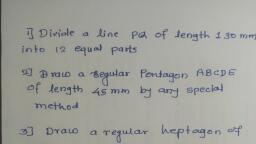 1] Divide a line PQ of length 130 mm
into 12 equal parts
2] Draw a regular Pentagon ABCDE
of length 45 mm by any special
method
3] Draw a regular heptagon of